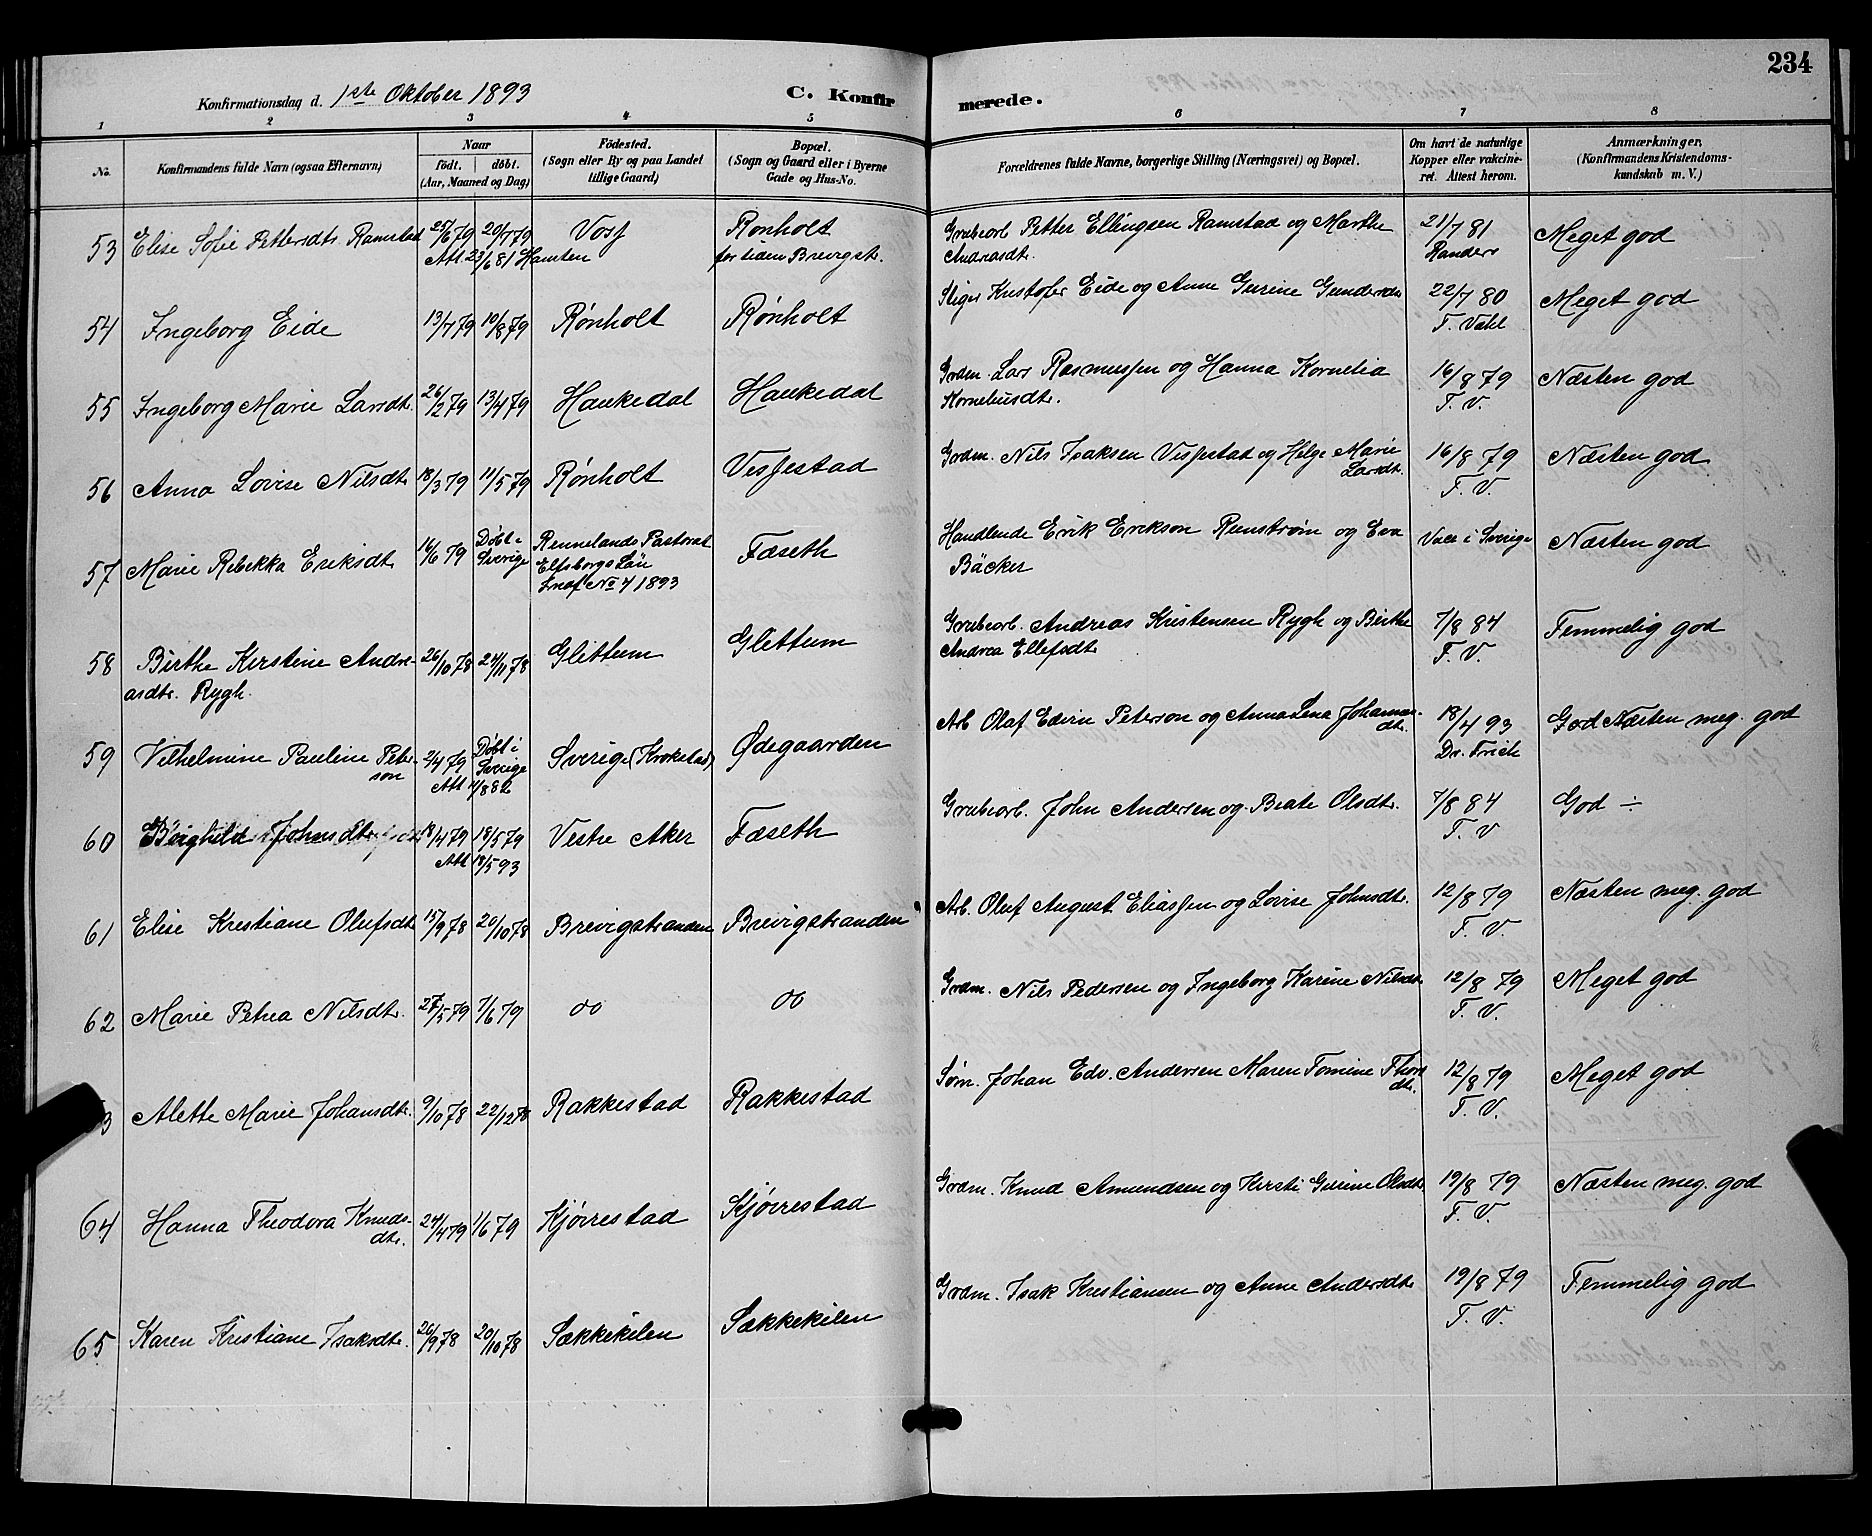 234
Konfirmationsdag d. 1ste Oktober 1893 C. Konfir merede.
1 2 3 4 5 6 7 8
No. Konfirmandens fulde Navn (ogsaa Efternavn) Naar født. døbt. (Aar, Maaned og Dag) Födested. (Sogn eller By og paa Landet tillige Gaard) Bopæl. (Sogn og Gaard eller i Byerne Gade og Hus-No. Forældrenes fulde Navne, borgerlige Stilling (Næringsvei) og Bopæl. Om havt de naturlige Kopper eller vakcineret. Attest herom. Anmærkninger. (Konfirmandens Kristendomskundskab m. V.)
53 Elise Sofie Pettersdtr. Ramstad 25/6 79 20/7 79 Voss Rønholt Grubearb. Petter Ellingsen Ramstad og Marthe 21/7 81 Meget god
Att 23/6 81 for tiden Brevigstr. Andreasdt. Randers
54 Ingeborg Eide 13/7 79 10/8 79 Rønholt Rønholt Stiger Kristofer Eide og Anne Gurine Gundersdtr 22/7 80 Meget god
T. Vahl
55 Ingeborg Marie Larsdt. 26/2 79 13/4 79 Haukedal Haukedal Grdm. Lars Rasmussen og Hanna Kornelia 16/8 79 Næsten god
Korneliusdt. T. V.
56 Anna Lovise Nilsdt. 18/3 79 11/5 79 Rønholt Vessestad Grdm. Nils Isaksen Vessestad og Helge Marie 16/8 79 Næsten god
Larsdt. T. V.
57 Marie Rebekka Eriksdt. 16/6 79 Døbt i Sverige Rennelands Pastorat Fæseth Handlende Erik Erikson Runstrøm og Eva Vacc i Sverige Næsten god
Elfsborgs Län Bäcker
No 4 1893
58 Birthe Kirstine Andre- 26/10 78 24/11 78 Glittum Glittum Grubearb. Andreas Kristensen Rygh og Birthe 7/8 84 Temmelig god
asdtr. Rygh. Andrea Ellefsdt. T. V.
59 Vilhelmine Pauline Peter- 2/4 79 Døbt i Sverige Sverige (Krokstad) Ødegaarden Arb Olaf Edvin Peterson og Anna Lena Johannes- 18/4 93 God Næsten meg. god
son Att 11/8 82 dtr. Dr. Frich
60 Borghild Johnsdtr. 18/4 79 18/5 79 Vestre Aker Fæseth Grubearb. John Andersen og Beate Olsdt. 7/8 84 God ÷
Att 18/5 93 T. V
61 Elise Kristiane Olufsdt. 15/9 78 20/10 78 Brevigstranden Brevigstranden Arb. Oluf August Eliassen og Lovise Johnsdt. 12/8 79 Næsten meg. god
T. V.
62 Marie Petrea Nilsdt. 27/5 79 7/6 79 oo oo Grdm. Nils Pedersen og Ingeborg Karine Nilsdt. 12/8 79 Meget god
T. V.
3 Alette Marie Johansdtr. 9/10 78 22/12 78 Rakkestad Rakkestad Søm. Johan Edv. Andersen Maren Tomine Thors 12/8 79 Meget god
dtr. T. V.
64 Hanna Theodora Knuds- 24/4 79 1/6 79 Kjørrestad Kjørrestad Grdm. Knud Amundsen og Kirsti Gurine Olsdt. 19/8 79 Næsten meg. god
dtr. T. V.
65 Karen Kristiane Isaksdt. 26/9 78 20/10 78 Sækkekilen Sækkekilen Grdm. Isak Kristiansen og Anne Andersdt. 19/8 79 Temmelig god
T. V.